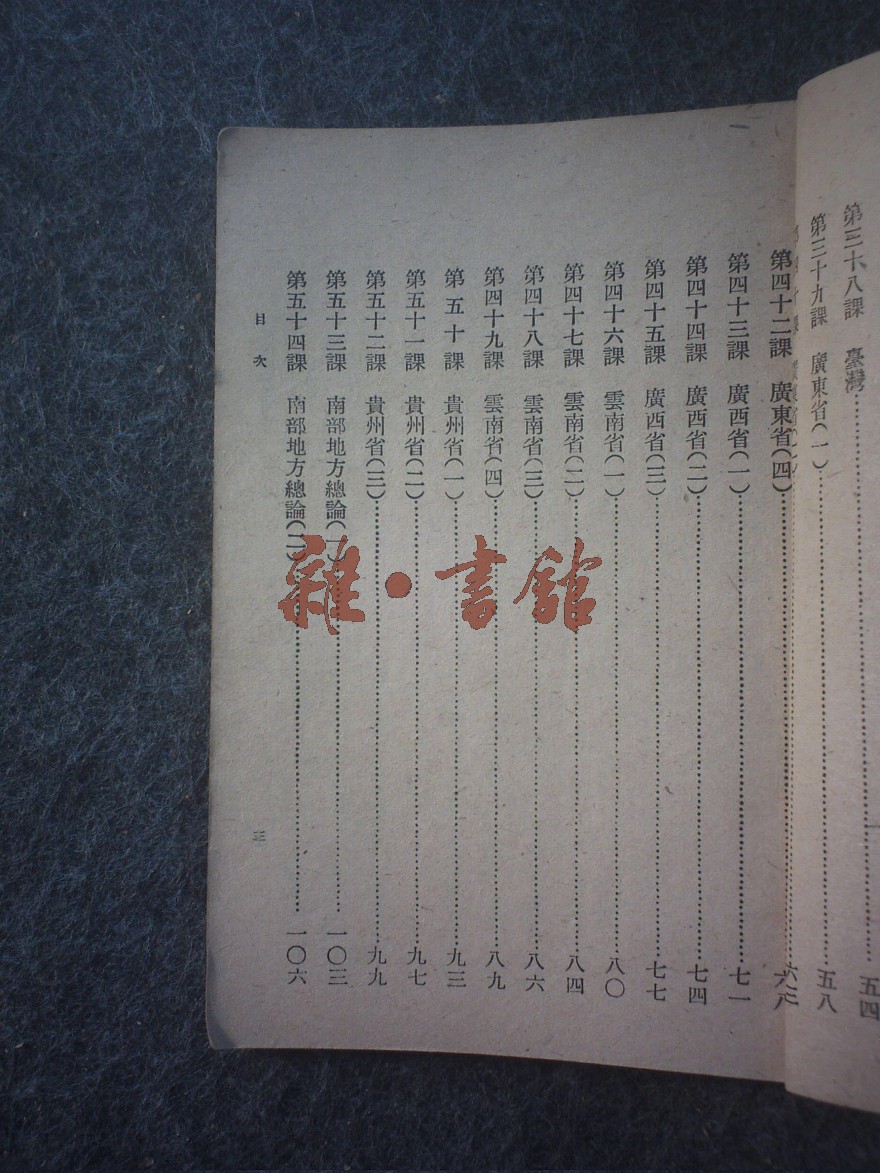 第三十八課　臺灣……五四
第三十九課　廣東省(一)……五八
第四十二課　廣東省(四)……六八
第四十三課　廣西省(一)……七一
第四十四課　廣西省(二)……七四
第四十五課　廣西省(三)……七七
第四十六課　雲南省(一)……八〇
第四十七課　雲南省(二)……八四
第四十八課　雲南省(三)……八六
第四十九課　雲南省(四)……八九
第五十課　貴州省(一)……九三
第五十一課　貴州省(二)……九七
第五十二課　貴州省(三)……九九
第五十三課　南部地方總論(一)……一〇三
第五十四課　南部地方總論(二)……一〇六
目次　三
雜·書館